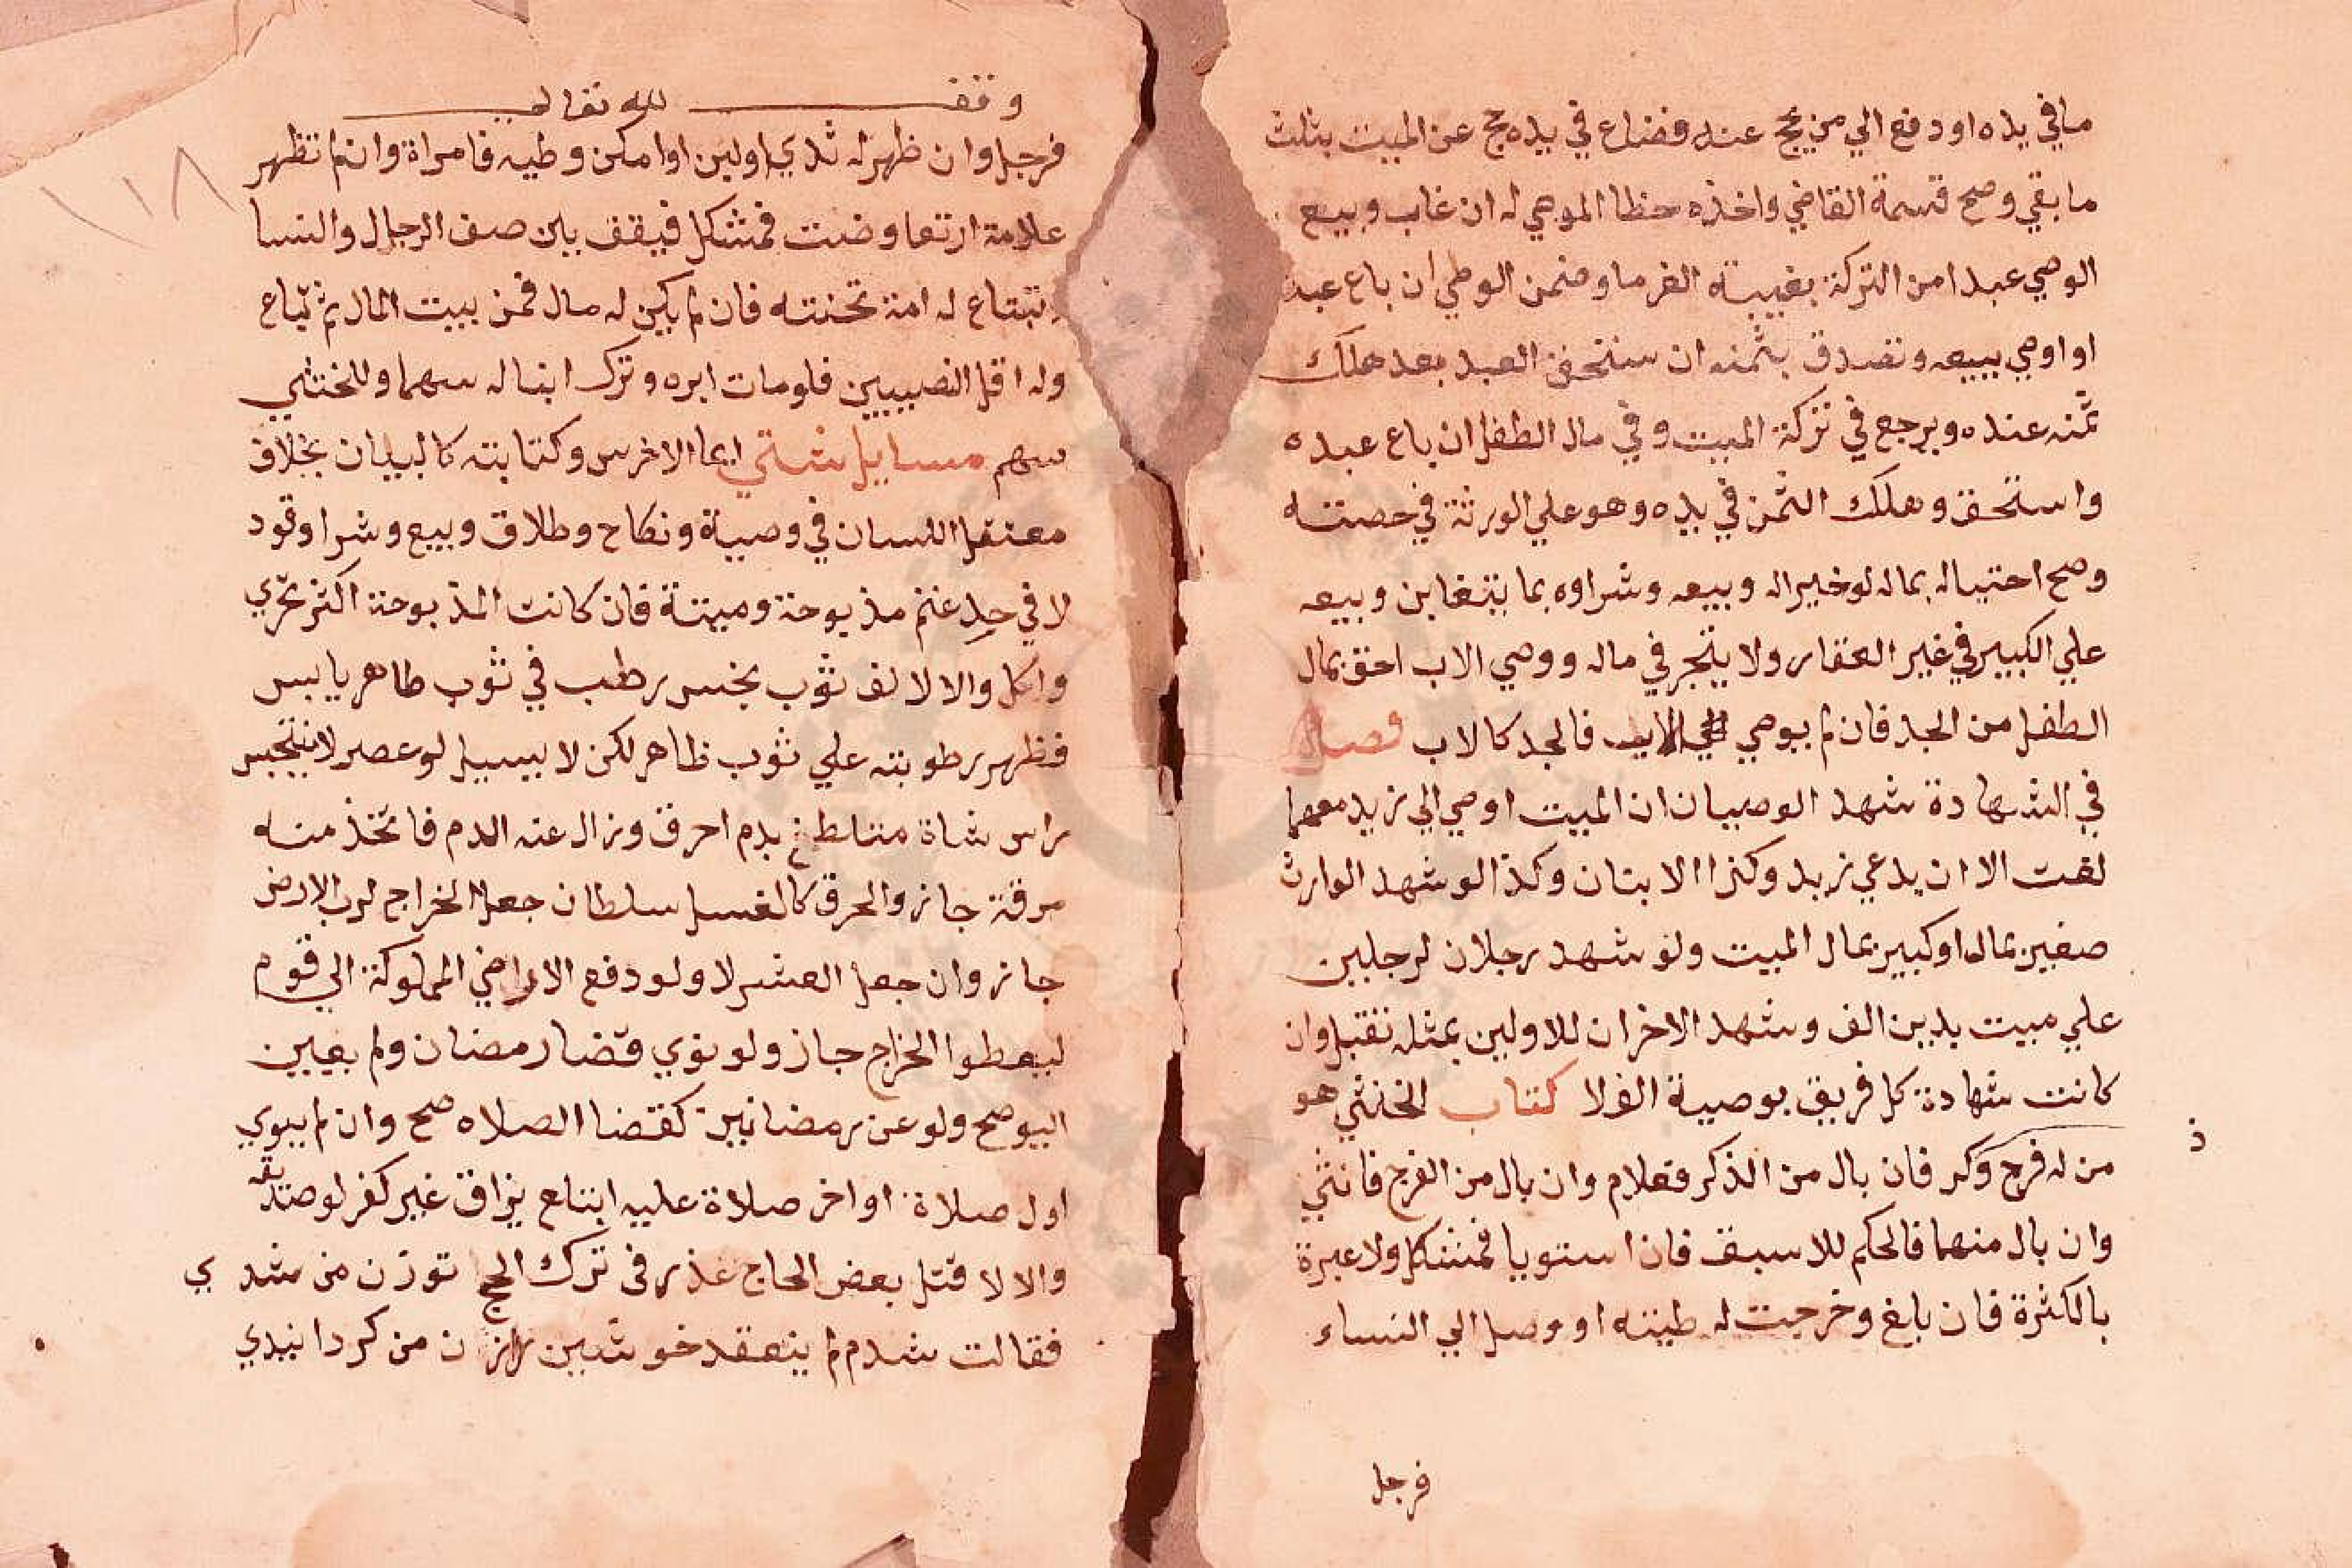 ما في يده او دفع الي من يحج عنه فضاع في يده يحج عن الميت بثلث
ما بقي وصح قسمة القاضي واخذه حظ الموصي له ان غاب وبيع
الوصي عبدا من التركة بغيبة الغرما وضمن الوصي ان باع عبدا
او اوصي ببيعه وتصدق بثمنه ان ستحق العبد بعد هلاك
ثمنه عنده ويرجع في تركة الميت وفي مال الطفل ان باع عبده
واستحق وهلك الثمن في يده وهو علي الورثة في حصته
وصح احتياله بماله لو خيرا له وبيعه وشراوه بما يتغابن وبيعه
علي الكبير في غير العقار ولا يتجر في ماله ووصي الاب احق بمال
الطفل من الجد فان لم يوصي الاب فالجد كالاب فصل
في الشهادة شهد الوصيان ان الميت اوصي الي زيد معهما
لغت الا ان يدعي زيد وكذا الابنان وكذا لو شهد الوارث
صغير بمال او كبير بمال الميت ولو شهد رجلان لرجلين
علي ميت بدين الف وشهد الاخران للاولين بمثله تقبل وان
كانت شهادة كل فريق بوصية الف لا كتاب الخنثي هو
من له فرج وكر فان بال من الذكر فغلام وان بال من الفرج فانثي
وان بال منهما فالحكم للاسبق فان استويا فمشكل ولا عبرة
بالكثرة فان بلغ وخرجت له لحيته او وصل الي النساء
فرجل
وقف لله تعالى
١١٨
فرجل وان ظهر له ثدي او لبن او امكن وطيه فامراة وان لم تظهر
علامة ارتعا وضت فمشكل فيقف بين صف الرجال والنسا
وتبتاع له امة تختنه فان لم يكن له مال فمن بيت المال ثم تباع
وله اقل النصيبين فلو مات ابوه وترك ابنا له سهما وللخنثي
سهم مسايل شتي ايما الاخرس وكتابته كالبيان بخلاف
معتقل اللسان في وصية ونكاح وطلاق وبيع وشرا وقود
لا في حد غنم مذبوحة وميتة فان كانت المذبوحة اكثر تحري
واكل والا لا لف ثوب نجس رطب في ثوب طاهر يابس
فظهر رطوبته علي ثوب طاهر لكن لا يسيل لو عصر لا يتنجس
راس شاة متلطخ بدم احرق وزال عنه الدم فاتخذ منه
مرقة جاز والحرق كالغسل سلطان جعل الخراج لرب الارض
جاز وان جعل العشر لا ولو دفع الاراضي المملوكة الي قوم
ليعطوا الخراج جاز ولو نوي قضا رمضان ولم يعين
اليوم صح ولو عن رمضانين كقضا الصلاه صح وان لم ينوي
اول صلاة او اخر صلاة عليه ابتلع بزاق غير كفر لو صديقه
والا لا قتل بعض الحاج عذر في ترك الحج توزن من شدي
فقالت شدم لم ينعقد خويشتن را زن من كردانيدي